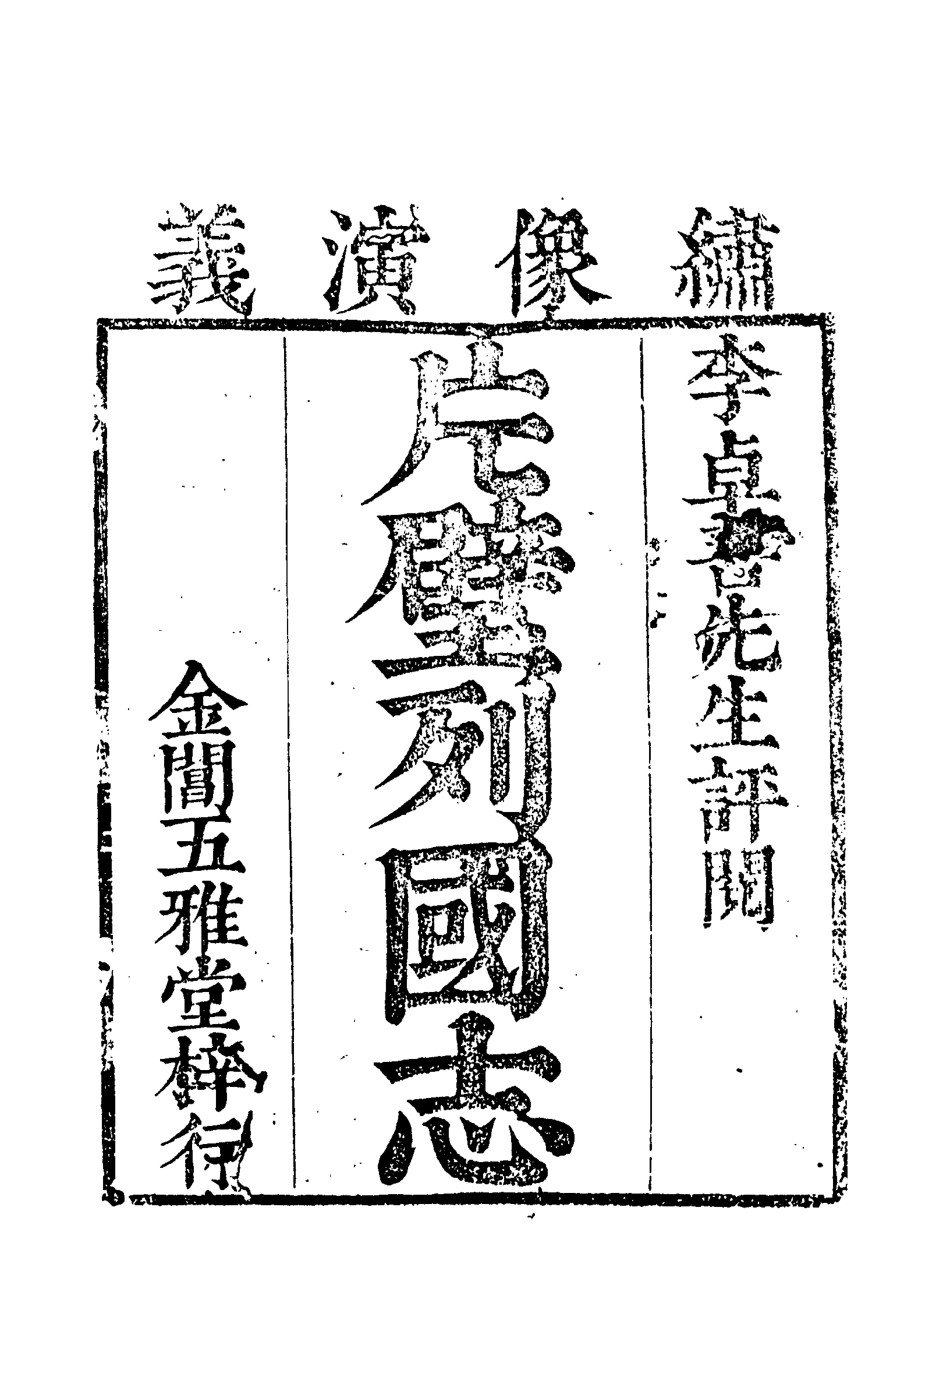 繡像演義
李卓吾先生評閱
片璧列國志
金閶五雅堂梓行